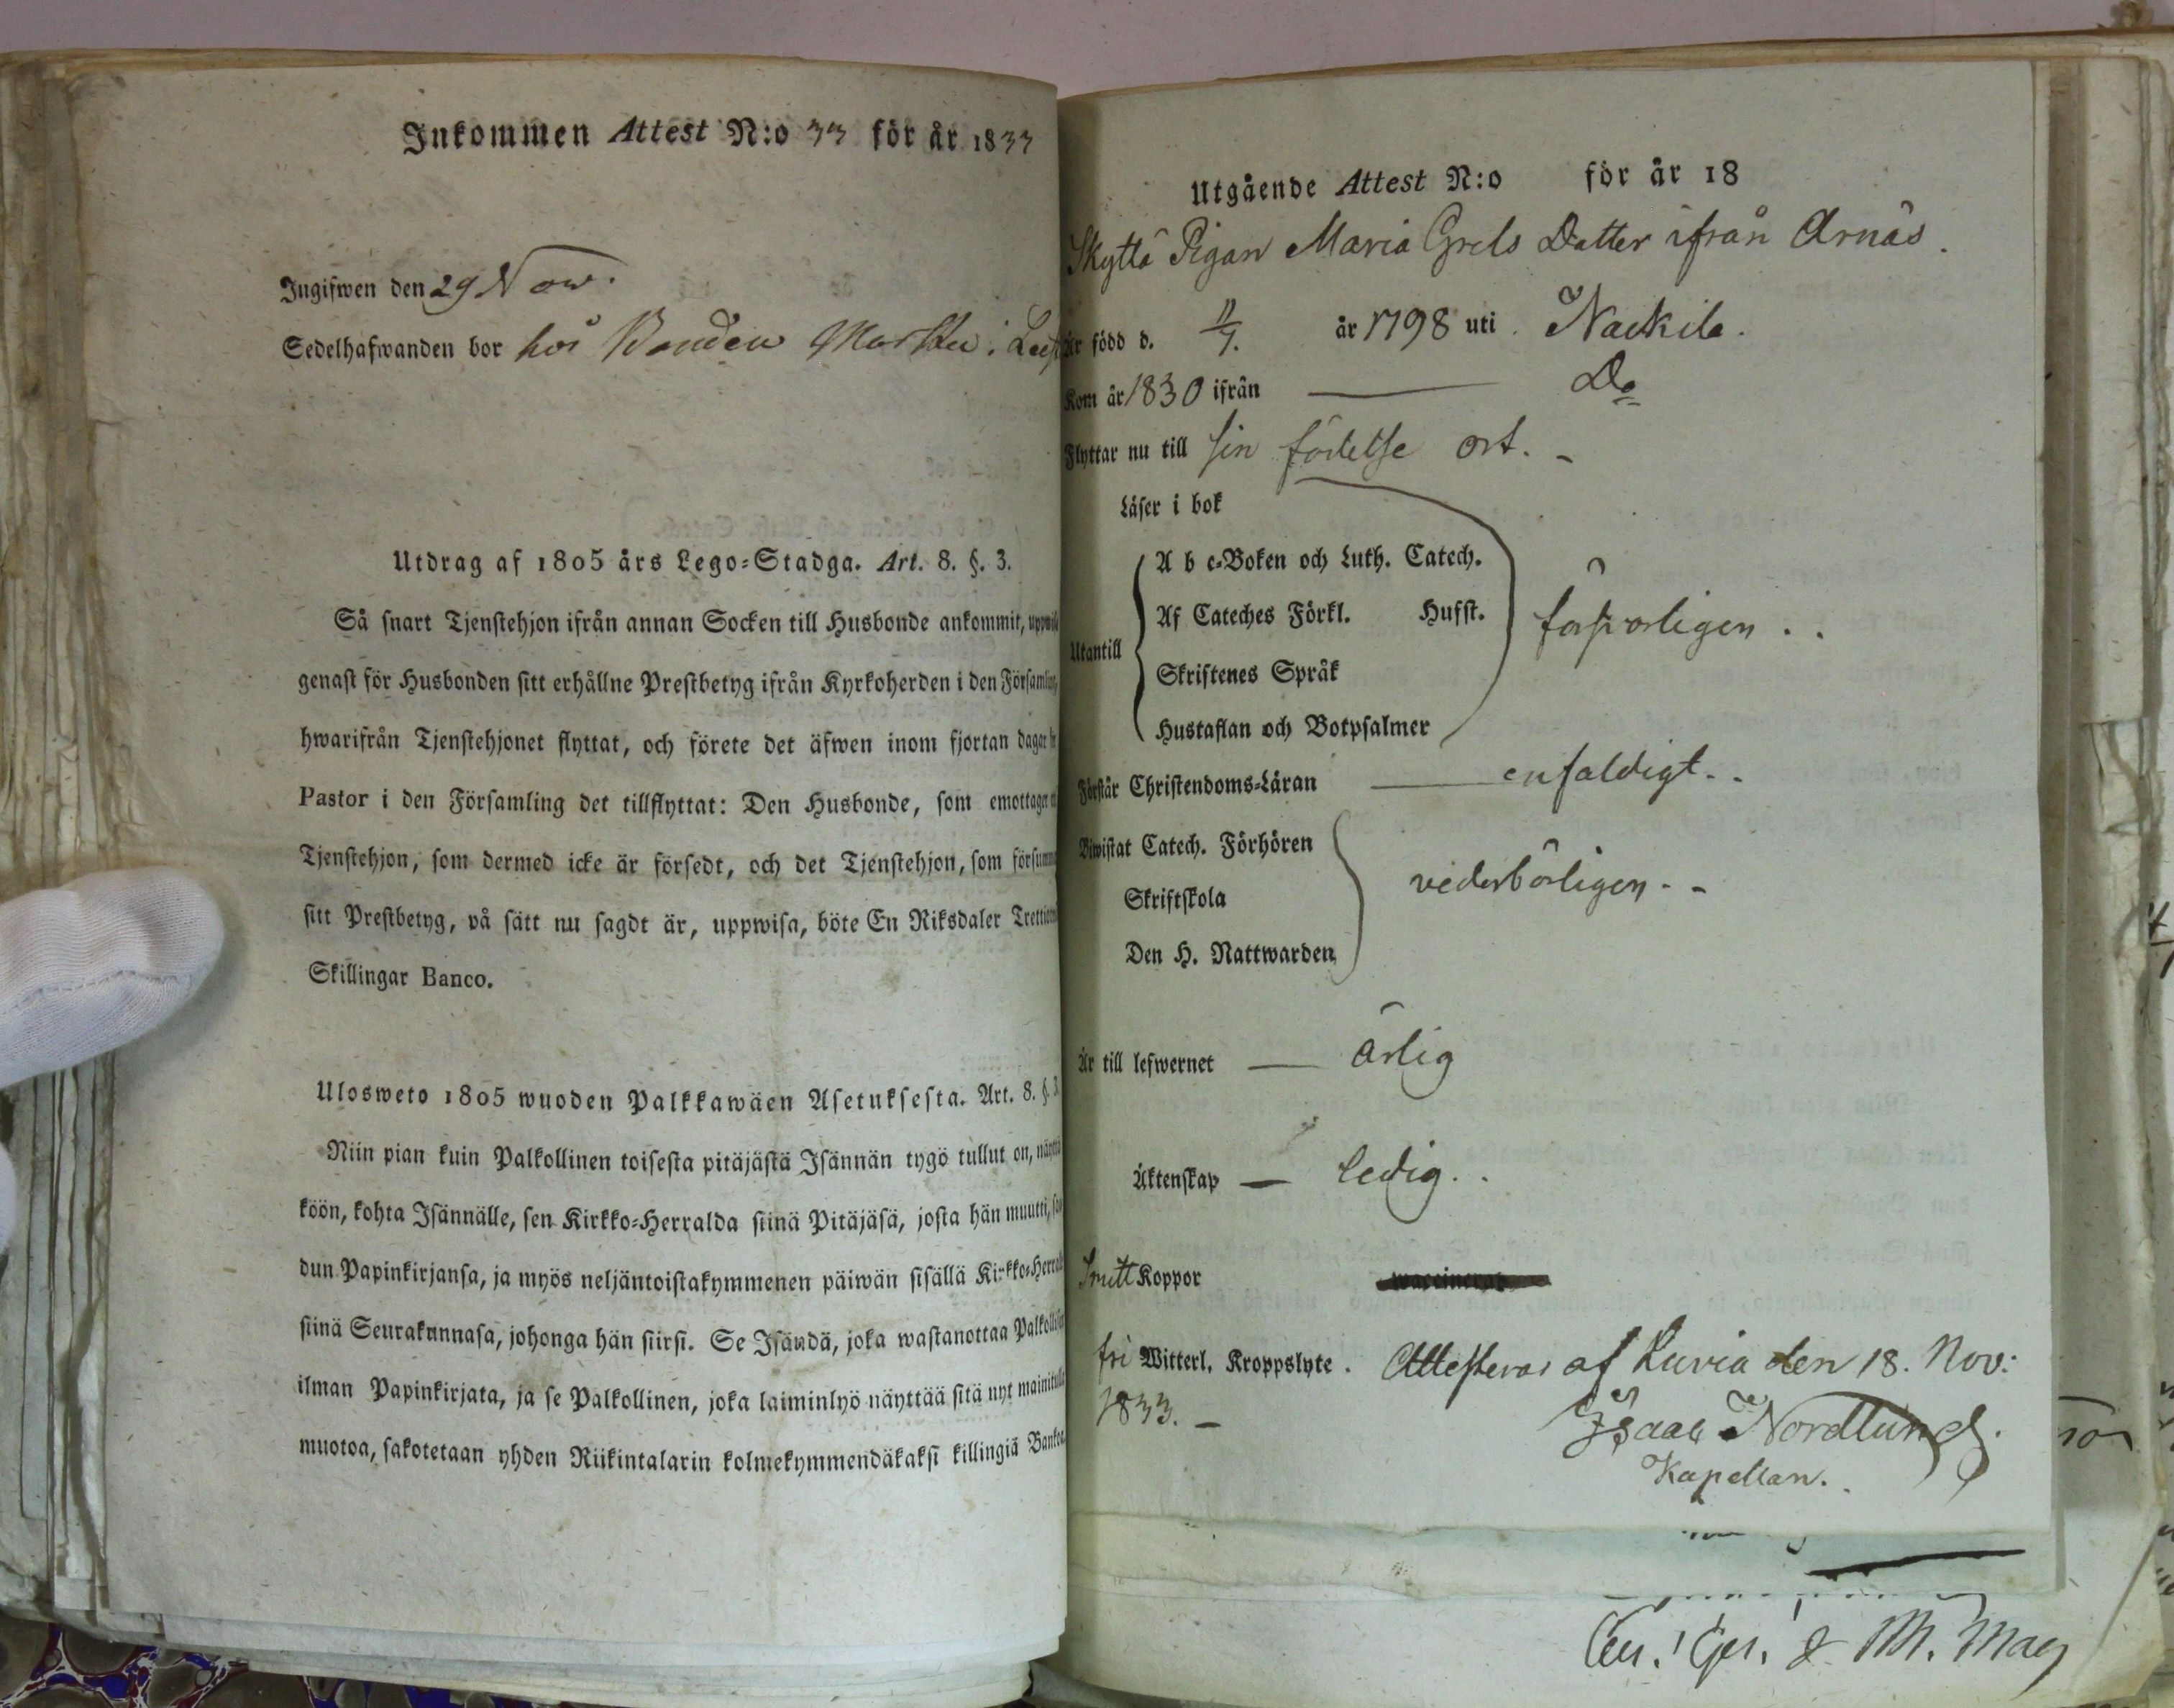 Inkommen Attest N:o 33 för år 1833
Ingifwen den 29 Nov.
Sedelhafwanden bor hos Bonden Markku i
Utdrag af 1805 års Lego-Stadga. Art. 8. §. 3.
Så snart Tjenstehjon ifrån annan Socken till Husbonde ankommit,
genast för Husbonden sitt erhållne Prestbetyg ifrån Kyrkoherden i den
hwarifrån Tjenstehjonet flyttat, och förete det äfwen inom fjortan dagar
Pastor i den Församling det tillflyttat: Den Husbonde, som emottager
Tjenstehjon, som dermed icke är försedt, och det Tjenstehjon, som
sitt Prestbetyg, på sätt nu sagdt är, uppwisa, böte En Riksdaler
Skillingar Banco.
Ulosweto 1805 wuoden Palkkawäen Asetuksesta. Art. 8. §. 3.
Niin pian kuin Palkollinen toisesta pitäjästä Isännän tygö tullut on,
köön, kohta Isännälle, sen Kirkko-Herralda siinä Pitäjäsä, josta hän muutti,
dun Papinkirjansa, ja myös neljäntoistakymmenen päiwän sisällä
siinä Seurakunnasa, johonga hän siirsi. Se Isändä, joka wastanottaa
ilman Papinkirjata, ja se Palkollinen, joka laiminlyö näyttää sitä nyt
muotoa, sakotetaan yhden Riikintalarin kolmekymmendäkaksi killingiä
Utgående Attest N:o för år 18
Skyttä Pigan Maria Grels Dotter ifrån Arnäs.
Är född d. 11/9. år 1798 uti Nackila.
Kom år 1830 ifrån — Do
Flyttar nu till sin födelse ort. -
Läser i bok
A b c-Boken och Luth. Catech.
Af Cateches Förkl. Husst.
försvarligen . .
Utantill
Skriftenes Språk
Hustaflan och Botpsalmer
Förstår Christendoms-Läran — enfaldigt. .
Biwistat Catech. Förhören
Skriftskola
vederbörligen. -
Den H. Nattwarden
Är till lefwernet — ärlig
Äktenskap — ledig. .
Koppor
fri Witterl. Kroppslyte. Attesteras af Luvia den 18. Nov:
1833. -
Isaac Nordlund.
Kapellan.